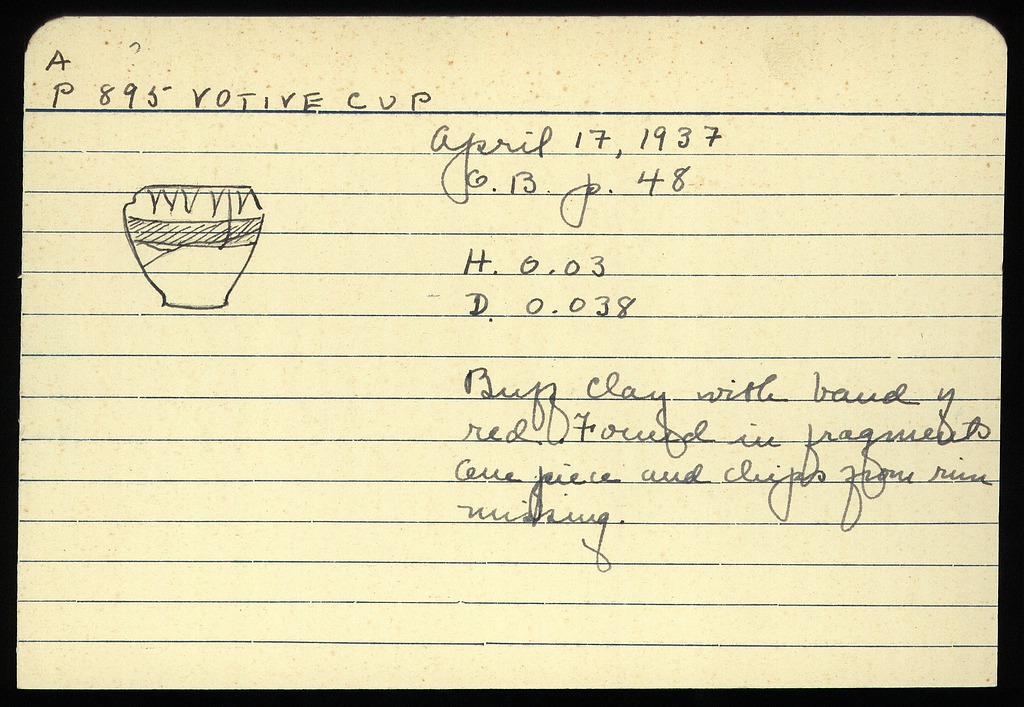 A
P 895 VOTIVE CUP
April 17, 1937
G. B. p. 48
H. 0.03
D. 0.038
Buff clay with band of
red. Found in fragments
One piece and chips from rim
missing.